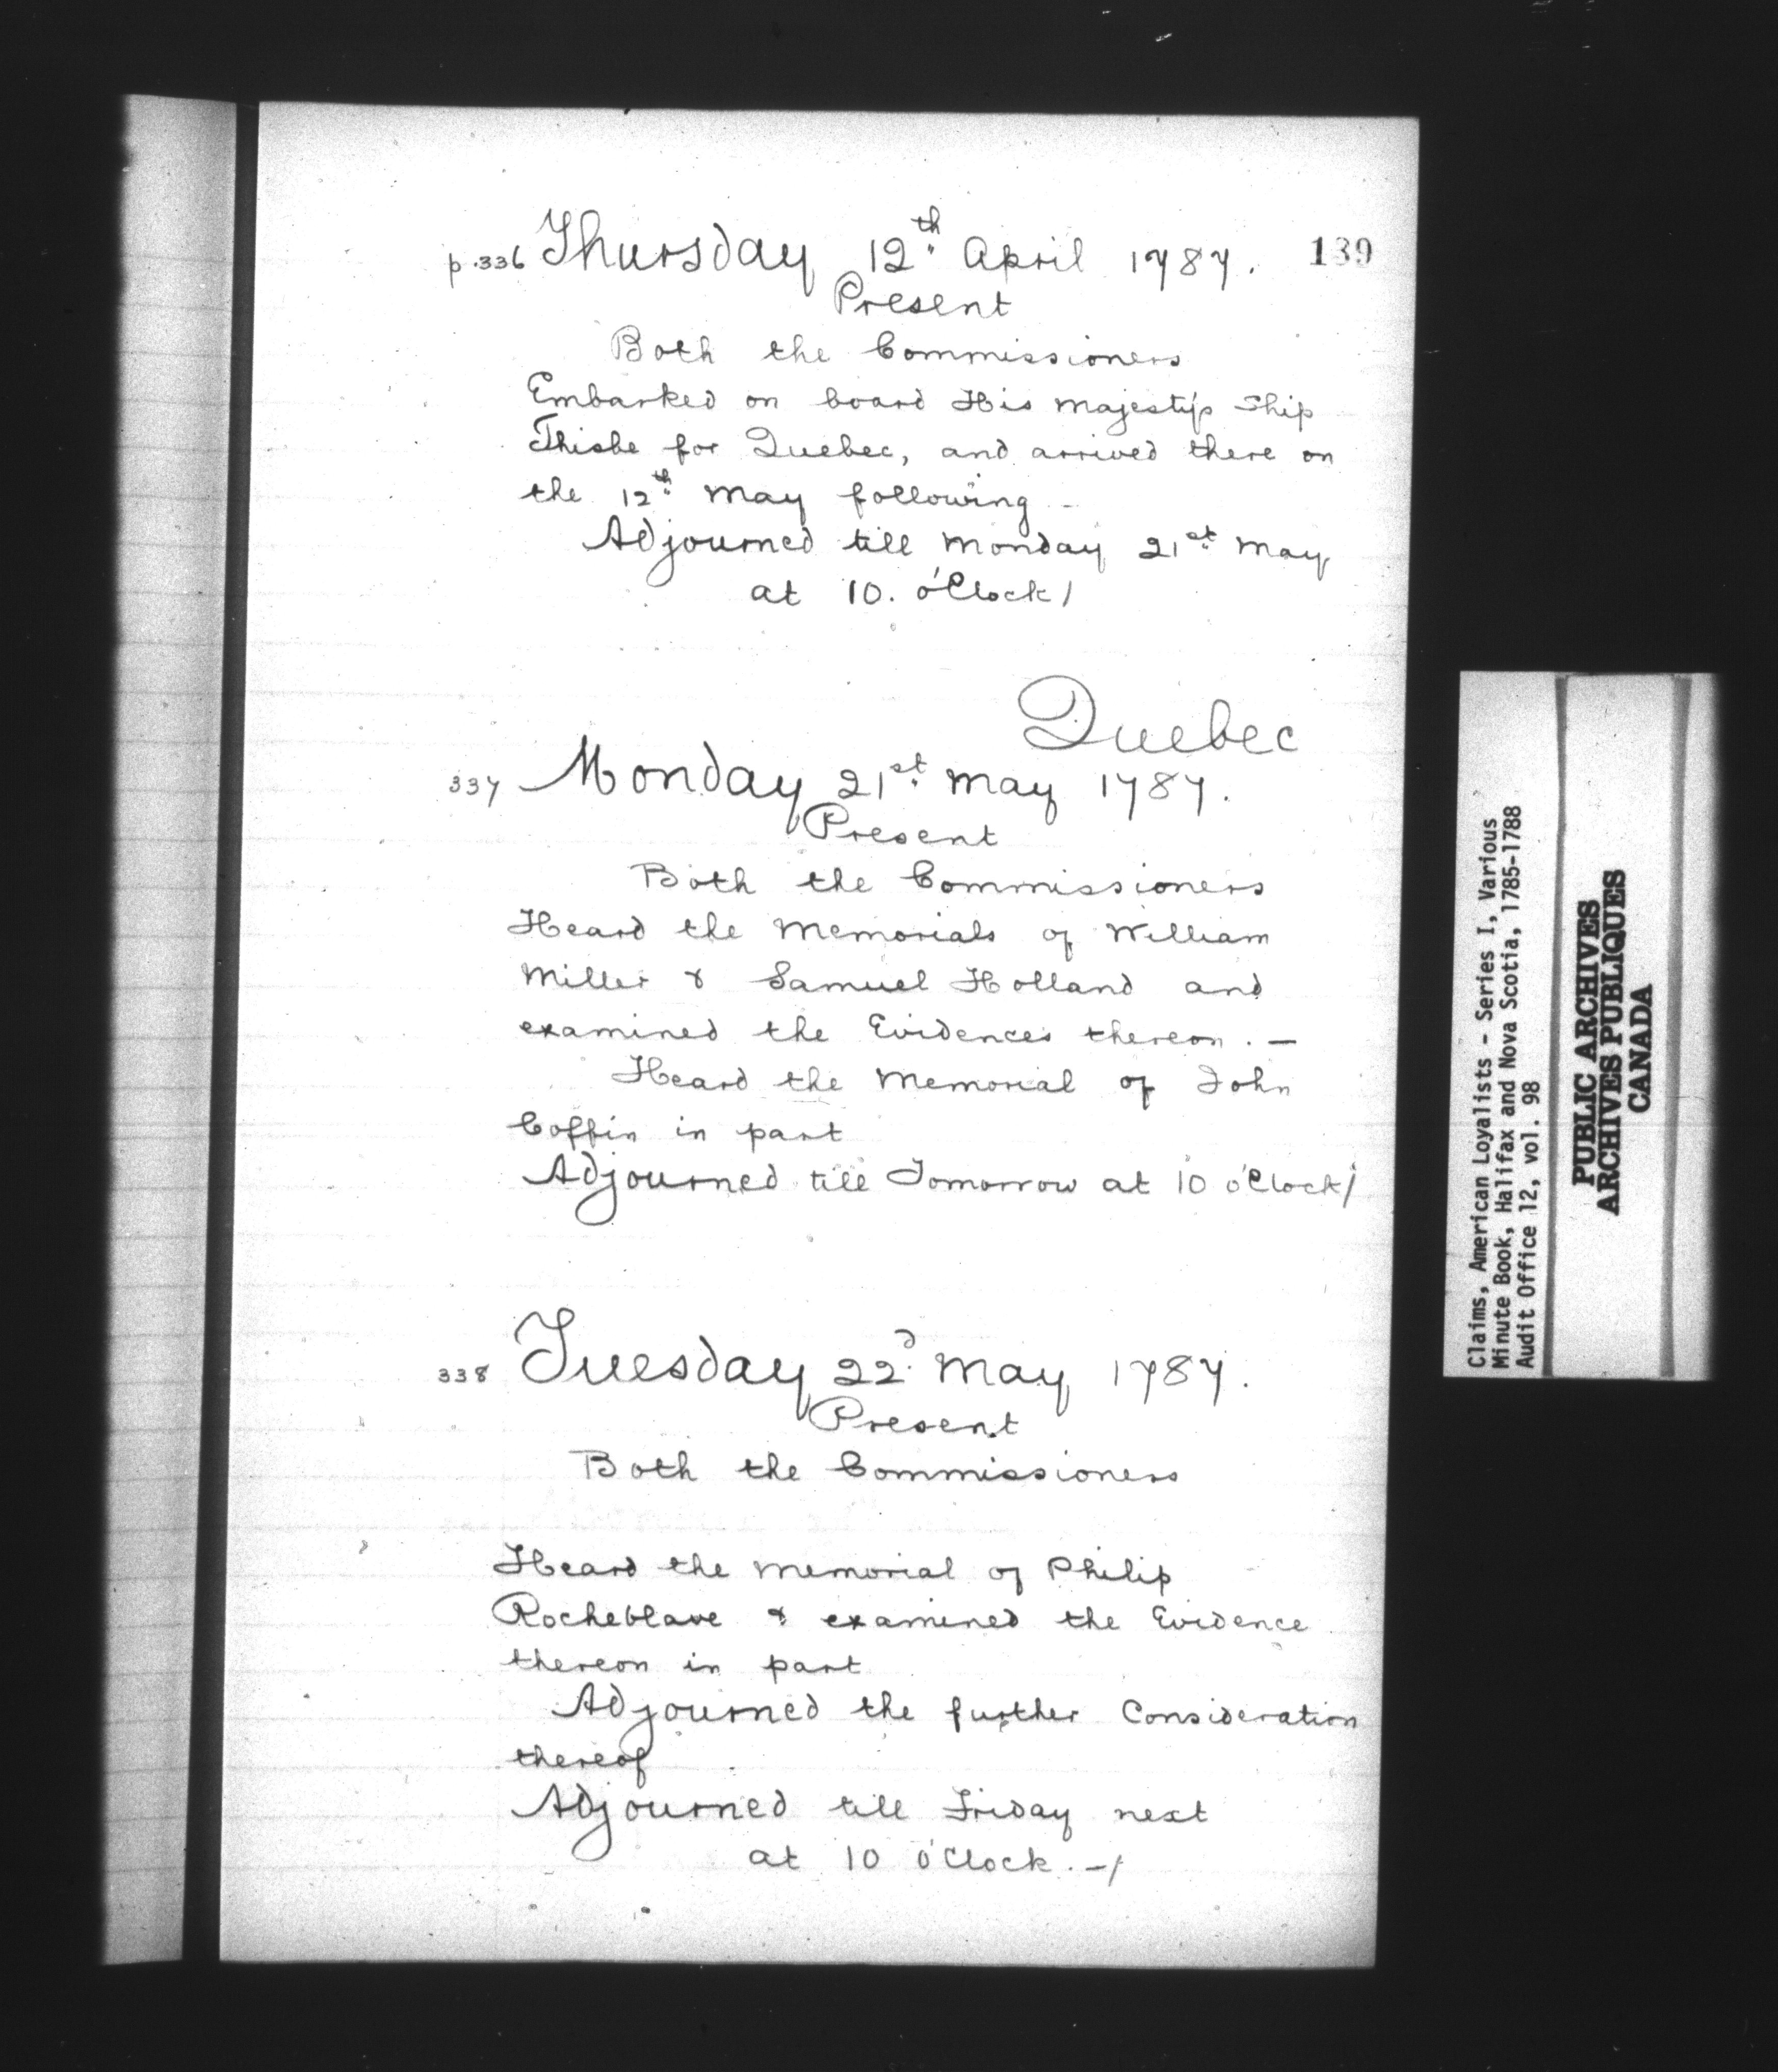 p. 336 Thursday 12th April 1787. 139
Present
Both the Commissioners
Embarked on board His Majesty's Ship
Thisbe for Quebec, and arrived there on
the 12th May following
Adjourned till Monday 21st May
at 10. o'Clock/
Quebec
337 Monday 21st May 1787.
Present
Both the Commissioners
Heard the Memorials of William
Miller & Samuel Holland and
examined the Evidences thereon. —
Heard the Memorial of John
Coffin in part
Adjourned till Tomorrow at 10 o'Clock/
338 Tuesday 22d May 1787.
Present
Both the Commissioners
Heard the Memorial of Philip
Rocheblave & examined the Evidence
thereon in part
Adjourned the further Consideration
thereof
Adjourned till Friday next
at 10 o'Clock. —/
Claims, American Loyalists - Series I, Various
Minute Book, Halifax and Nova Scotia, 1785-1788
Audit Office 12, vol. 98
PUBLIC ARCHIVES
ARCHIVES PUBLIQUES
CANADA